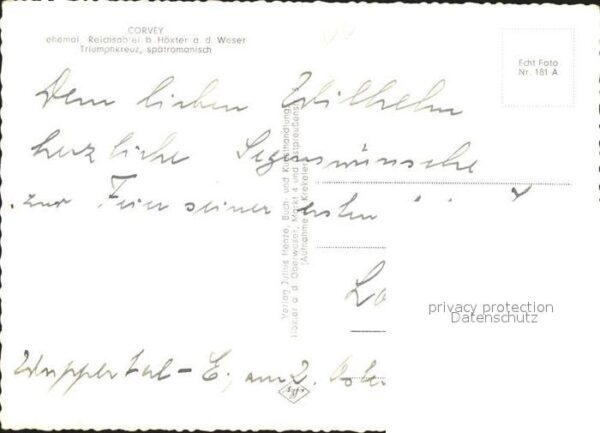 CORVEY
ehemal. Reichsabtei b. Höxter a. d. Weser
Triumphkreuz, spätromanisch
Echt Foto
Nr. 181 A
Dem lieben Wilhelm
herzliche Segenswünsche
zur Feier seiner ersten
Verlag Julius Henze, Buch- und Kunsthandlung
Höxter a. d. Oberweser, Markt 4 und
(Aufnahme
privacy protection
Datenschutz
Wuppertal-E, am 2.